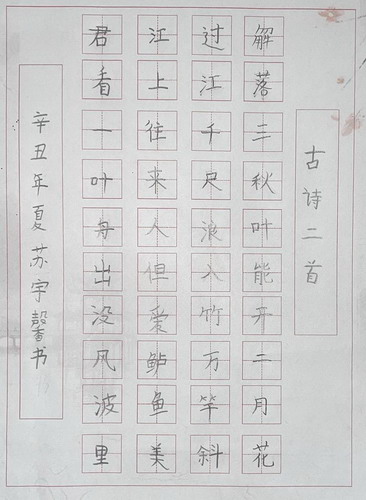 古诗二首
解落三秋叶能开二月花
过江千尺浪入竹万竿斜
江上往来人但爱鲈鱼美
君看一叶舟出没风波里
辛丑年夏苏宇馨书